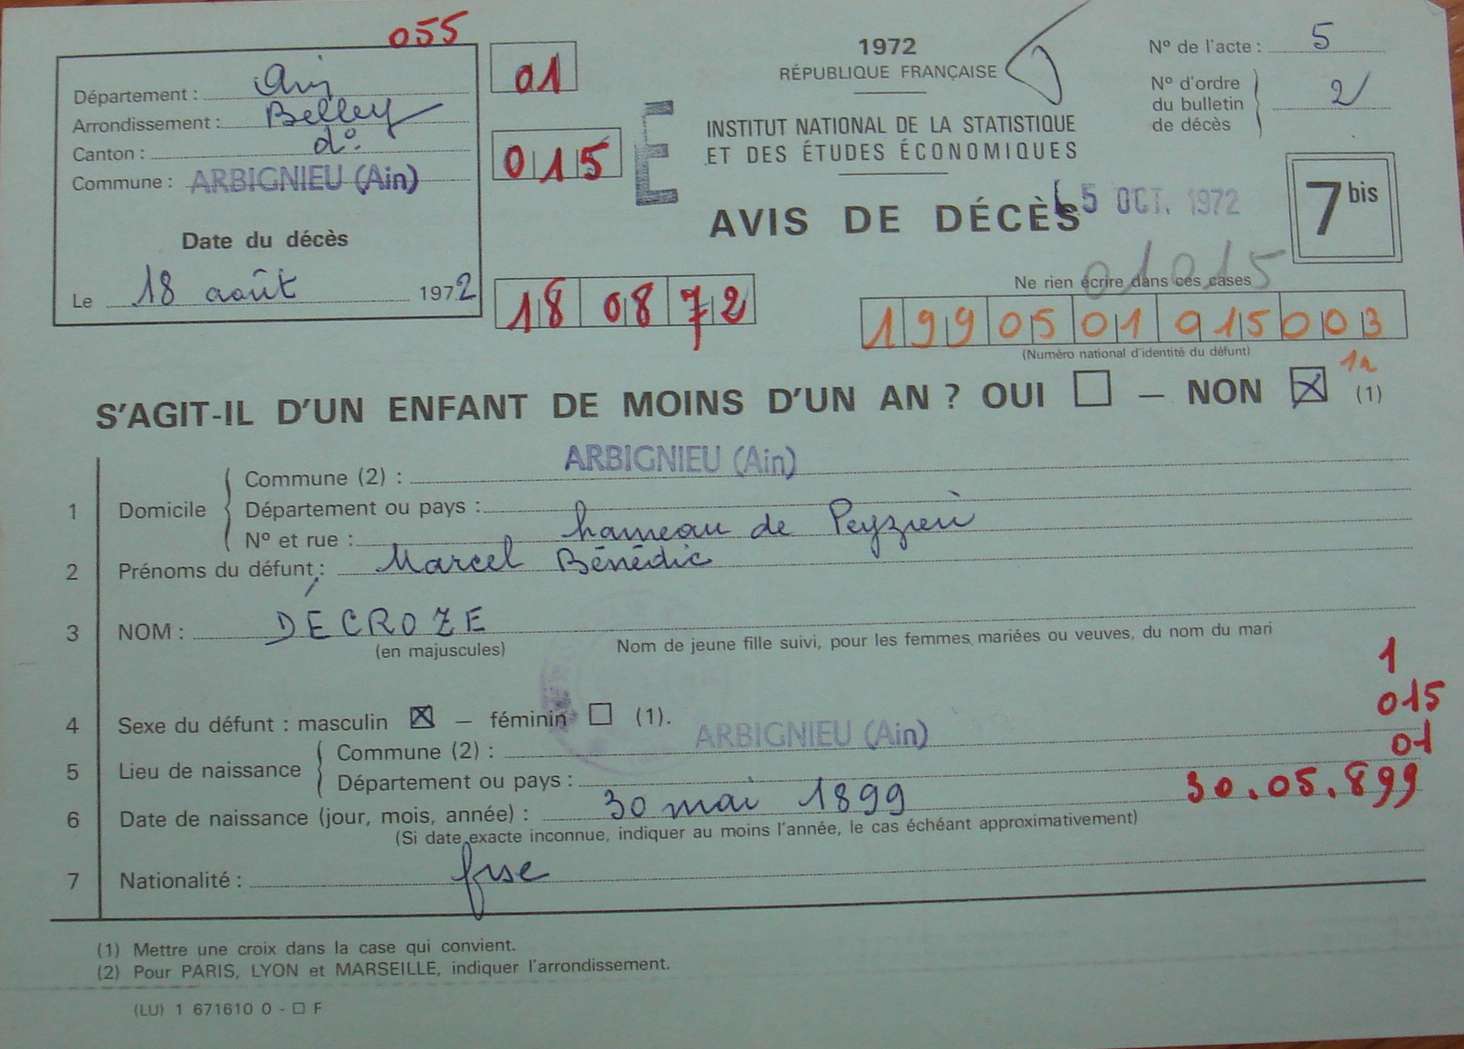 055
Département : Ain
Arrondissement : Belley
Canton : do.
Commune : ARBIGNIEU (Ain)
Date du décès
Le 18 août 1972
01
015
E
18 08 72
1972
RÉPUBLIQUE FRANÇAISE
INSTITUT NATIONAL DE LA STATISTIQUE
ET DES ÉTUDES ÉCONOMIQUES
AVIS DE DÉCÈS
5 OCT. 1972
N° de l'acte : 5
N° d'ordre
du bulletin
de décès
2
7 bis
01015
Ne rien écrire dans ces cases
1990501015003
(Numéro national d'identité du défunt)
S'AGIT-IL D'UN ENFANT DE MOINS D'UN AN ? OUI ☐ — NON ☒ (1)
1 Domicile
Commune (2) : ARBIGNIEU (Ain)
Département ou pays :
N° et rue : hameau de Peyzieu
2 Prénoms du défunt : Marcel Bénédic
3 NOM : DÉCROZE
(en majuscules) Nom de jeune fille suivi, pour les femmes mariées ou veuves, du nom du mari
1
4 Sexe du défunt : masculin ☒ — féminin ☐ (1).
015
5 Lieu de naissance
Commune (2) : ARBIGNIEU (Ain)
01
Département ou pays :
6 Date de naissance (jour, mois, année) : 30 mai 1899 30.05.899
(Si date exacte inconnue, indiquer au moins l'année, le cas échéant approximativement)
7 Nationalité : fse
(1) Mettre une croix dans la case qui convient.
(2) Pour PARIS, LYON et MARSEILLE, indiquer l'arrondissement.
(LU) 1 671610 0 - ☐ F